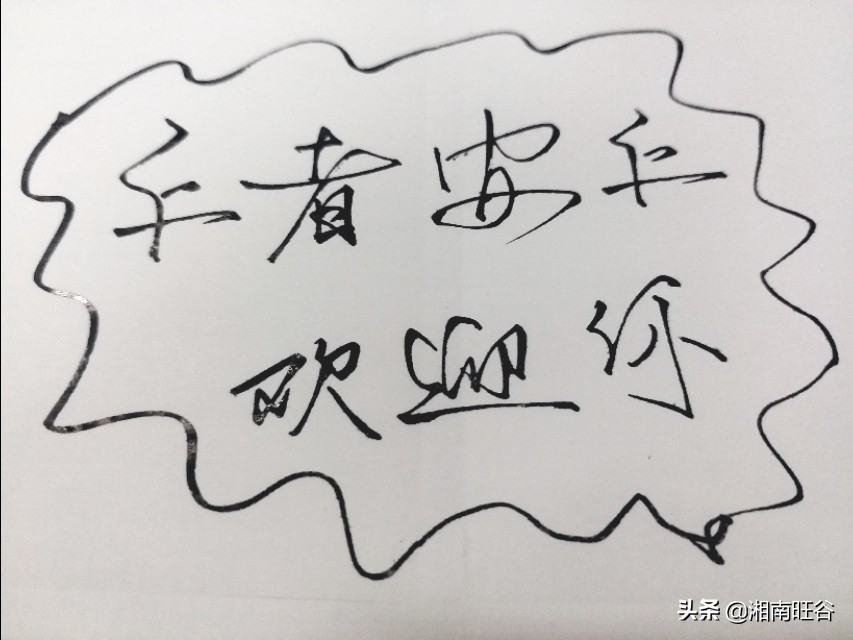 仁者安仁
欢迎你
头条 @湘南旺谷